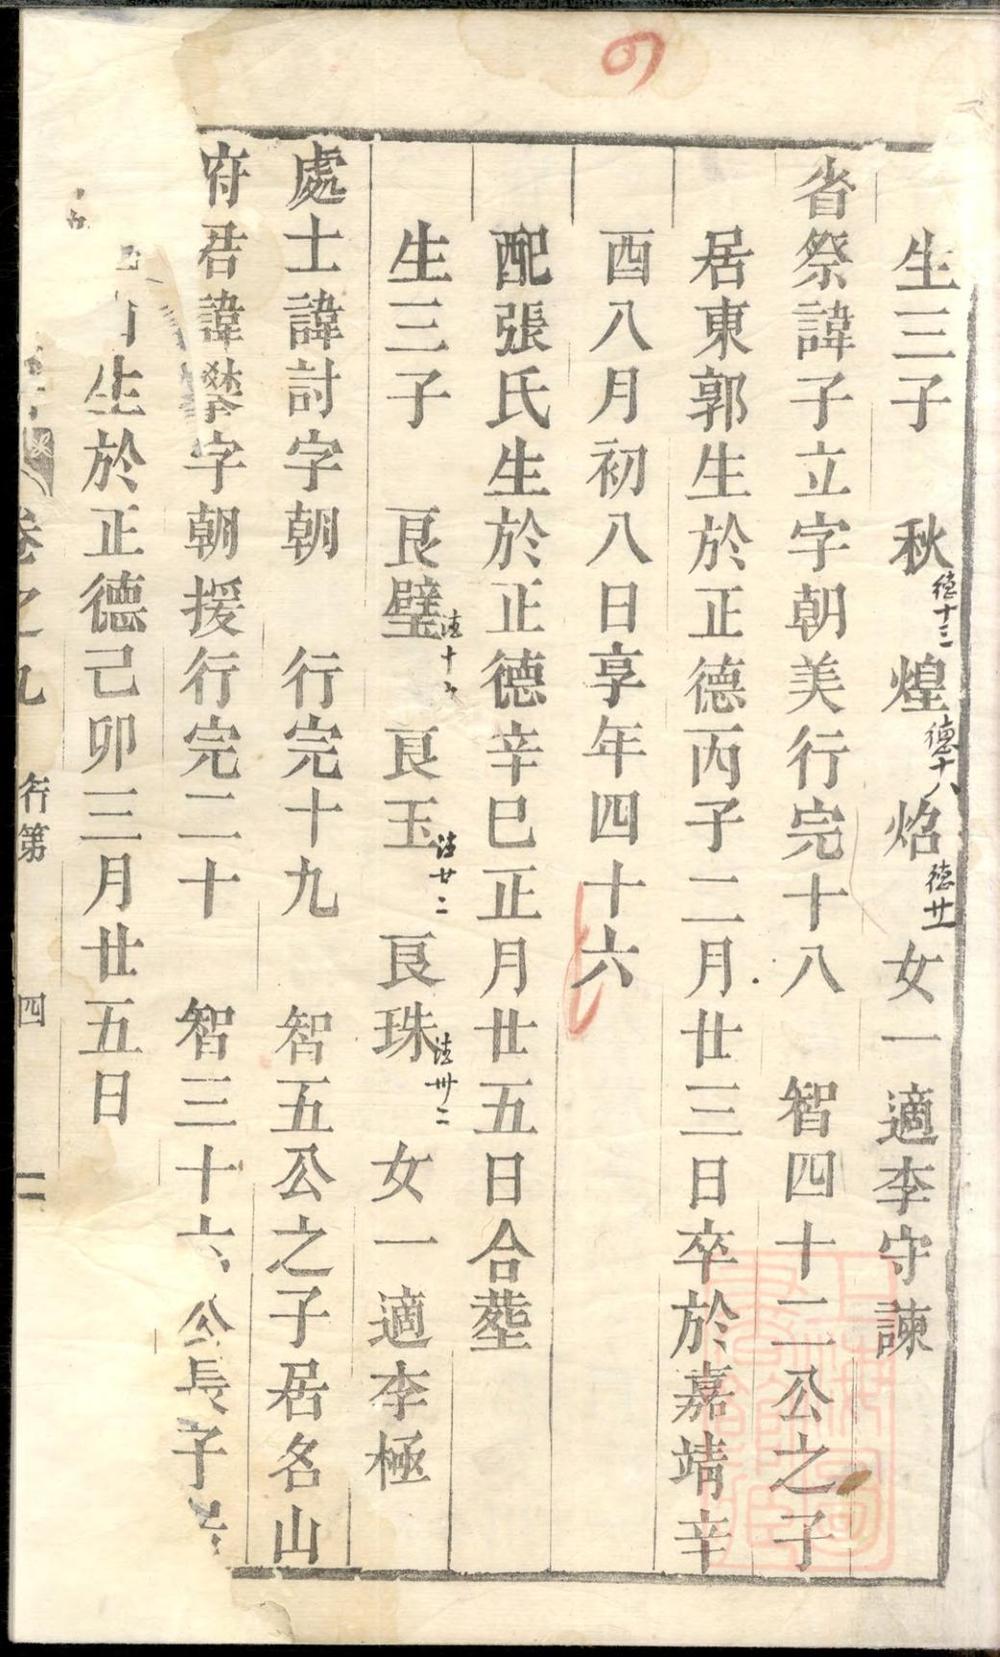 生三子 秋 德十三 煌 德十八 焰 德廿 女一適李守諫
省祭諱子立字朝美行完十八 智四十二公之子
居東郭生於正德丙子二月廿三日卒於嘉靖辛
酉八月初八日享年四十六
配張氏生於正德辛巳正月廿五日合塟
生三子 良璧 法十 良玉 法廿二 良珠 法卅二 女一適李極
處士諱討字朝 行完十九 智五公之子居名山
府君諱攀字朝援行完二十 智三十六公長子
生於正德己卯三月廿五日
卷之九 行第 四